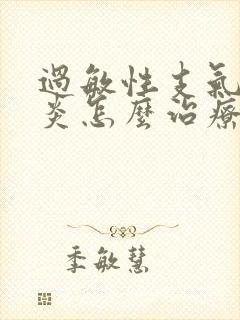 過敏性支氣
炎怎麼治療
季敏慧